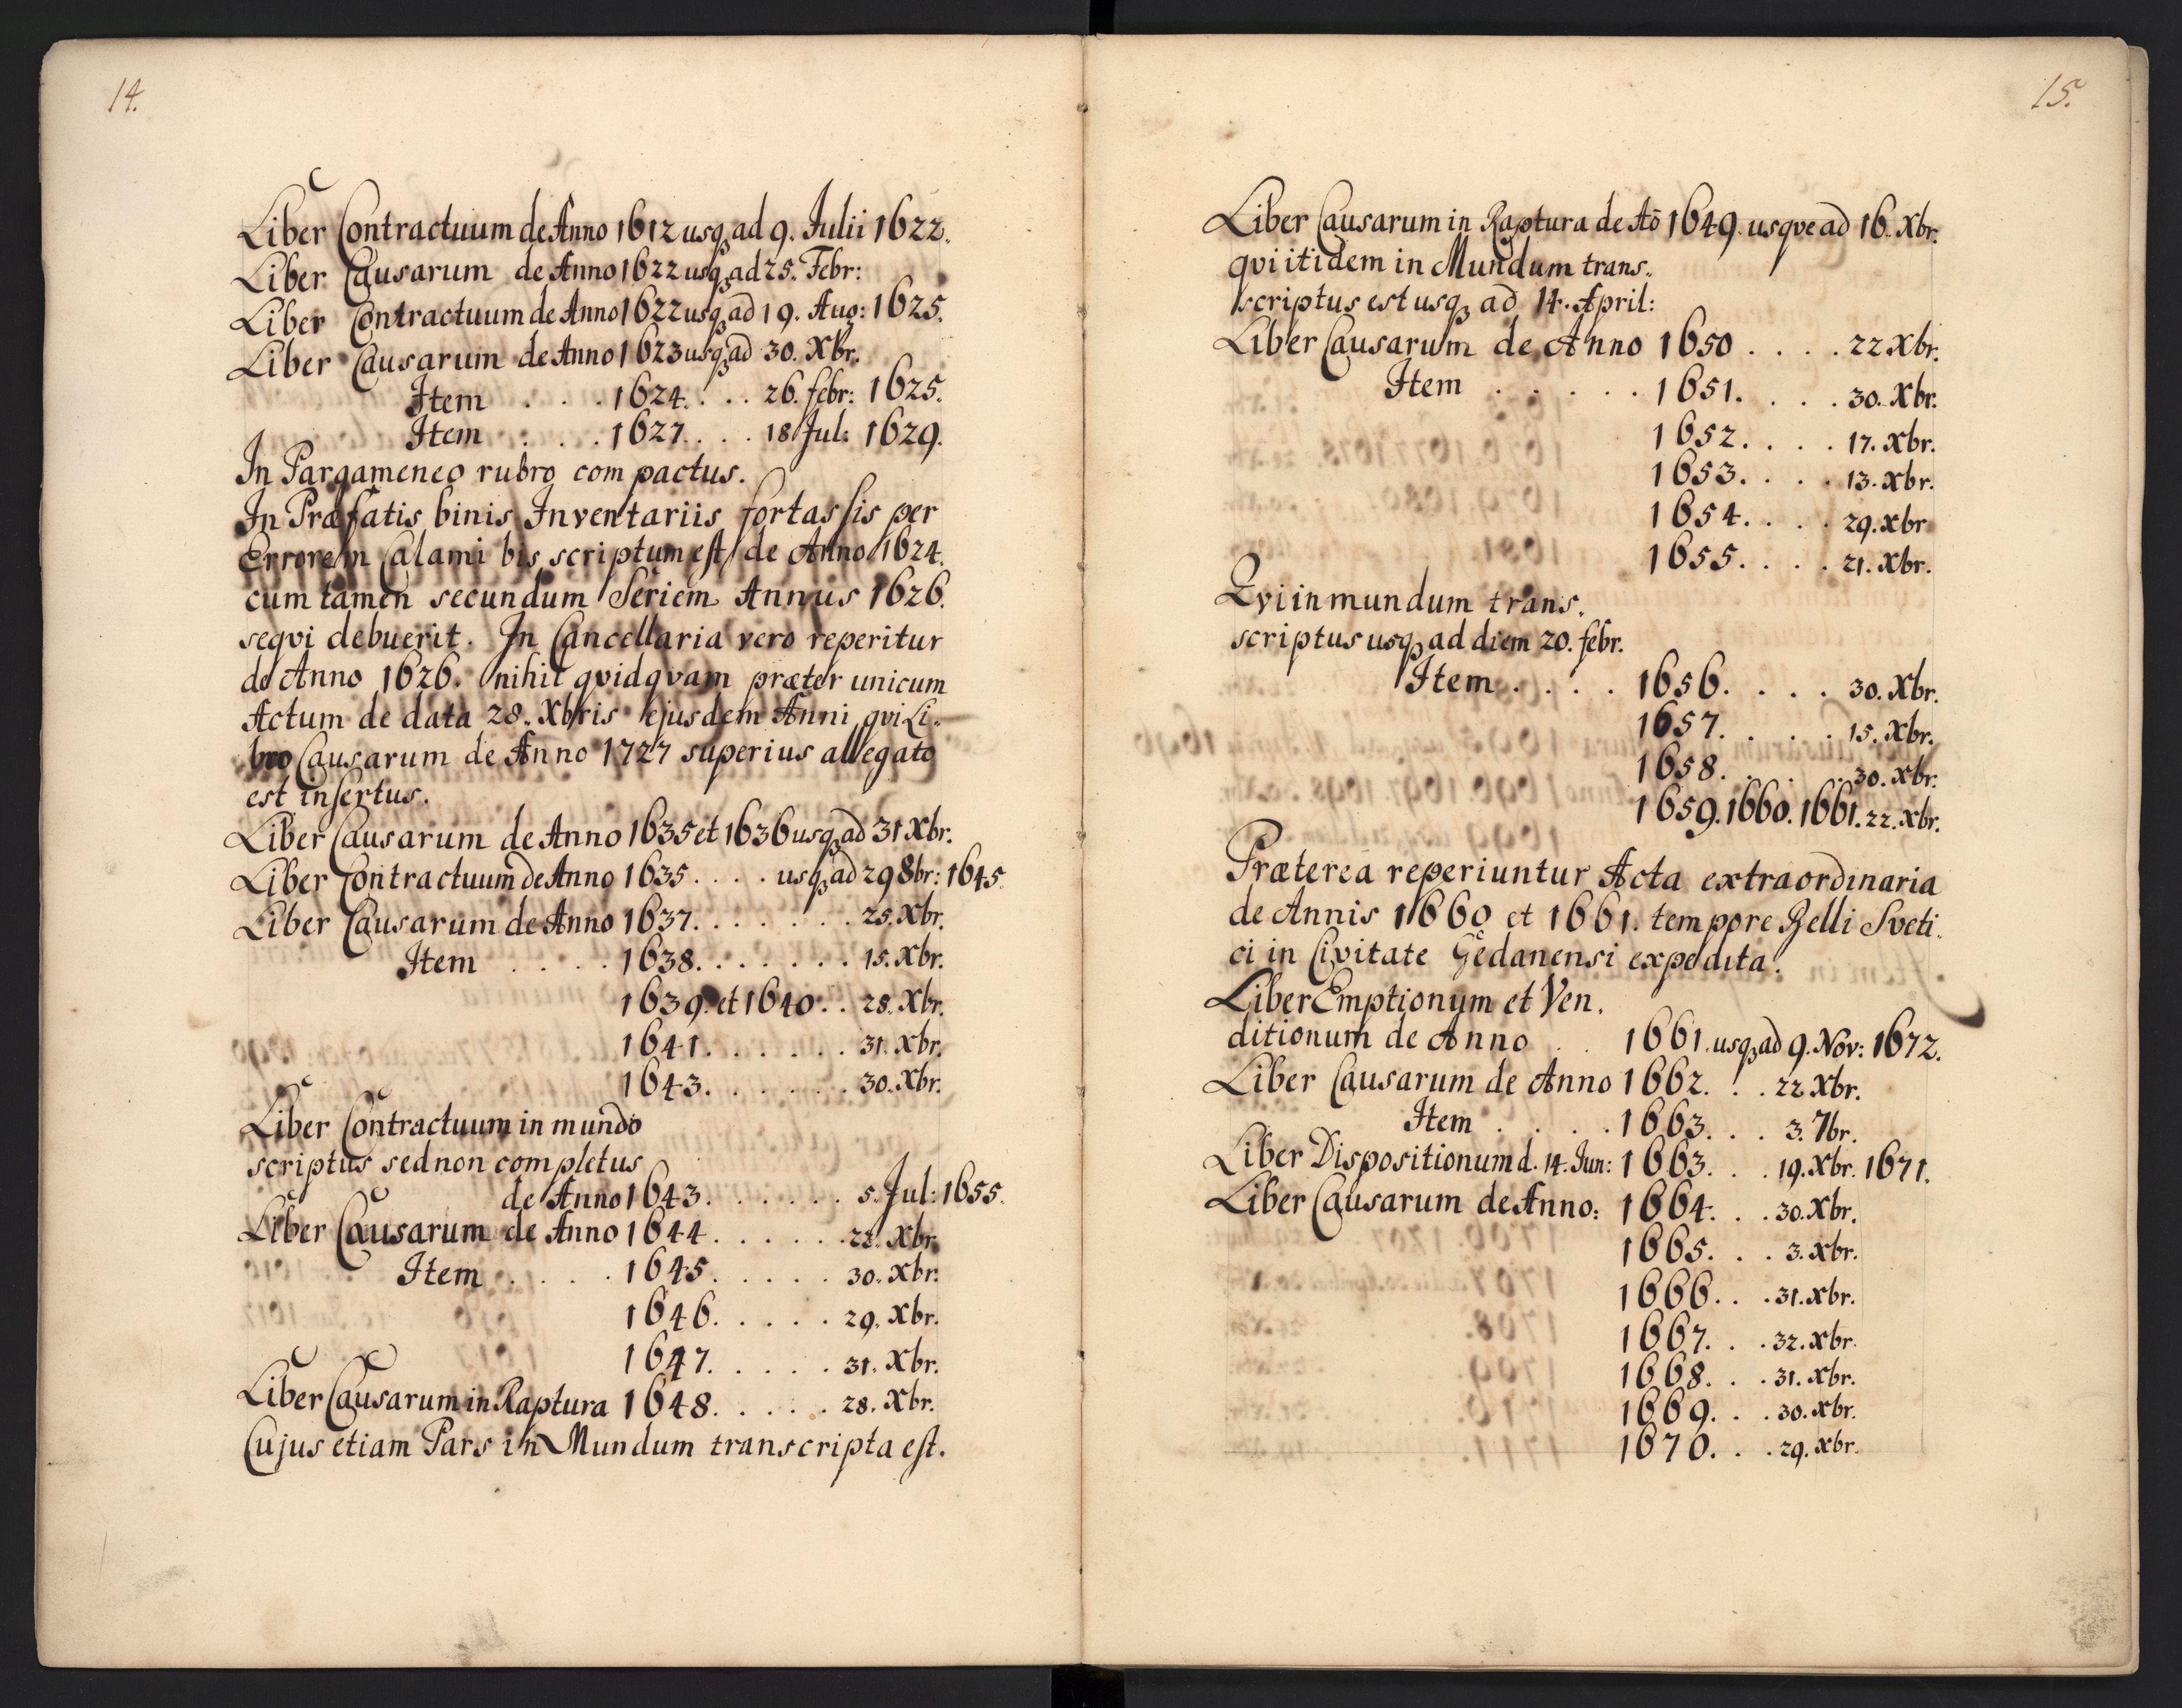 14.
Liber Contractuum de Anno 1612 usqꝫ ad 9. Julii 1622.
Liber Causarum de Anno 1622 usqꝫ ad 25. Febr:
Liber Contractuum de Anno 1622 usqꝫ ad 19. Aug: 1625.
Liber Causarum de Anno 1623 usqꝫ ad 30. Xbr.
Item . . . 1624. . . . 26. febr: 1625.
Item . . . 1627. . . . 18 Jul: 1629.
In Pargameneo rubro compactus.
In Præfatis binis Inventariis fortassis per
Errorem Calami bis scriptum est de Anno 1624.
cum tamen secundum Seriem Annus 1626.
seqvi debuerit. In Cancellaria vero reperitur
de Anno 1626. nihil qvidqvam præter unicum
Actum de data 28. Xbris ejusdem Anni qvi Li-
bro Causarum de Anno 1727 superius allegato
est insertus.
Liber Causarum de Anno 1635 et 1636 usqꝫ ad 31 Xbr.
Liber Contractuum de Anno 1635 . . . . usqꝫ ad 29 8br: 1645.
Liber Causarum de Anno 1637. . . . . . . 25. Xbr.
Item . . . . 1638. . . . . . . 15. Xbr.
1639. et 1640. . . 28. Xbr.
1641. . . . . . . 31. Xbr.
1643. . . . . . . 30. Xbr.
Liber Contractuum in mundo
scriptus sed non completus
de Anno 1643. . . . . . . 5. Jul: 1655.
Liber Causarum de Anno 1644 . . . . . . 22. Xbr.
Item . . . . 1645. . . . . . 30. Xbr.
1646. . . . . . 29. Xbr.
1647. . . . . . 31. Xbr.
Liber Causarum in Raptura 1648. . . . . . 28. Xbr.
Cujus etiam Pars in Mundum transcripta est.
15.
Liber Causarum in Raptura de Aō 1649. usqve ad 16. Xbr.
qvi itidem in Mundum trans-
scriptus est usqꝫ ad 14. April:
Liber Causarum de Anno 1650 . . . . 22 Xbr.
Item . . . . . 1651. . . . . 30. Xbr.
1652. . . . . 17. Xbr.
1653. . . . . 13. Xbr.
1654. . . . . 29. Xbr
1655. . . . . 21. Xbr.
Qvi in mundum trans-
scriptus usqꝫ ad diem 20. febr.
Item . . . . 1656. . . . . 30. Xbr.
1657. . . . . 15. Xbr.
1658. . . . . 30. Xbr.
1659. 1660. 1661. 22. Xbr.
Præterea reperiuntur Acta extraordinaria
de Annis 1660 et 1661. tempore Belli Sveti-
ci in Civitate Gedanensi expedita.
Liber Emptionum et Ven-
ditionum de Anno . . 1661. usqꝫ ad 9. Nov: 1672.
Liber Causarum de Anno 1662. . . 22 Xbr.
Item . . . . 1663. . . . 3. 7br.
Liber Dispositionum d. 14. Jun: 1663. . . 19. Xbr. 1671.
Liber Causarum de Anno: 1664. . . 30. Xbr.
1665. . . 3. Xbr.
1666. . . 31. Xbr.
1667. . . 32. Xbr.
1668. . . 31. Xbr.
1669. . . 30. Xbr.
1670. . . 29. Xbr.